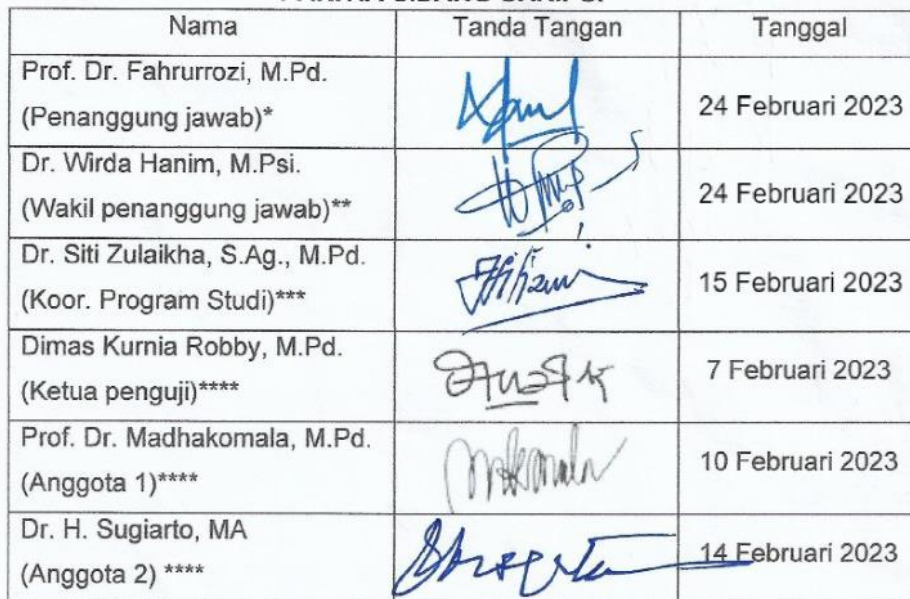 Nama Tanda Tangan Tanggal
Prof. Dr. Fahrurrozi, M.Pd.
(Penanggung jawab)*
24 Februari 2023
Dr. Wirda Hanim, M.Psi.
(Wakil penanggung jawab)**
24 Februari 2023
Dr. Siti Zulaikha, S.Ag., M.Pd.
(Koor. Program Studi)***
15 Februari 2023
Dimas Kurnia Robby, M.Pd.
(Ketua penguji)****
7 Februari 2023
Prof. Dr. Madhakomala, M.Pd.
(Anggota 1)****
10 Februari 2023
Dr. H. Sugiarto, MA
(Anggota 2) ****
14 Februari 2023